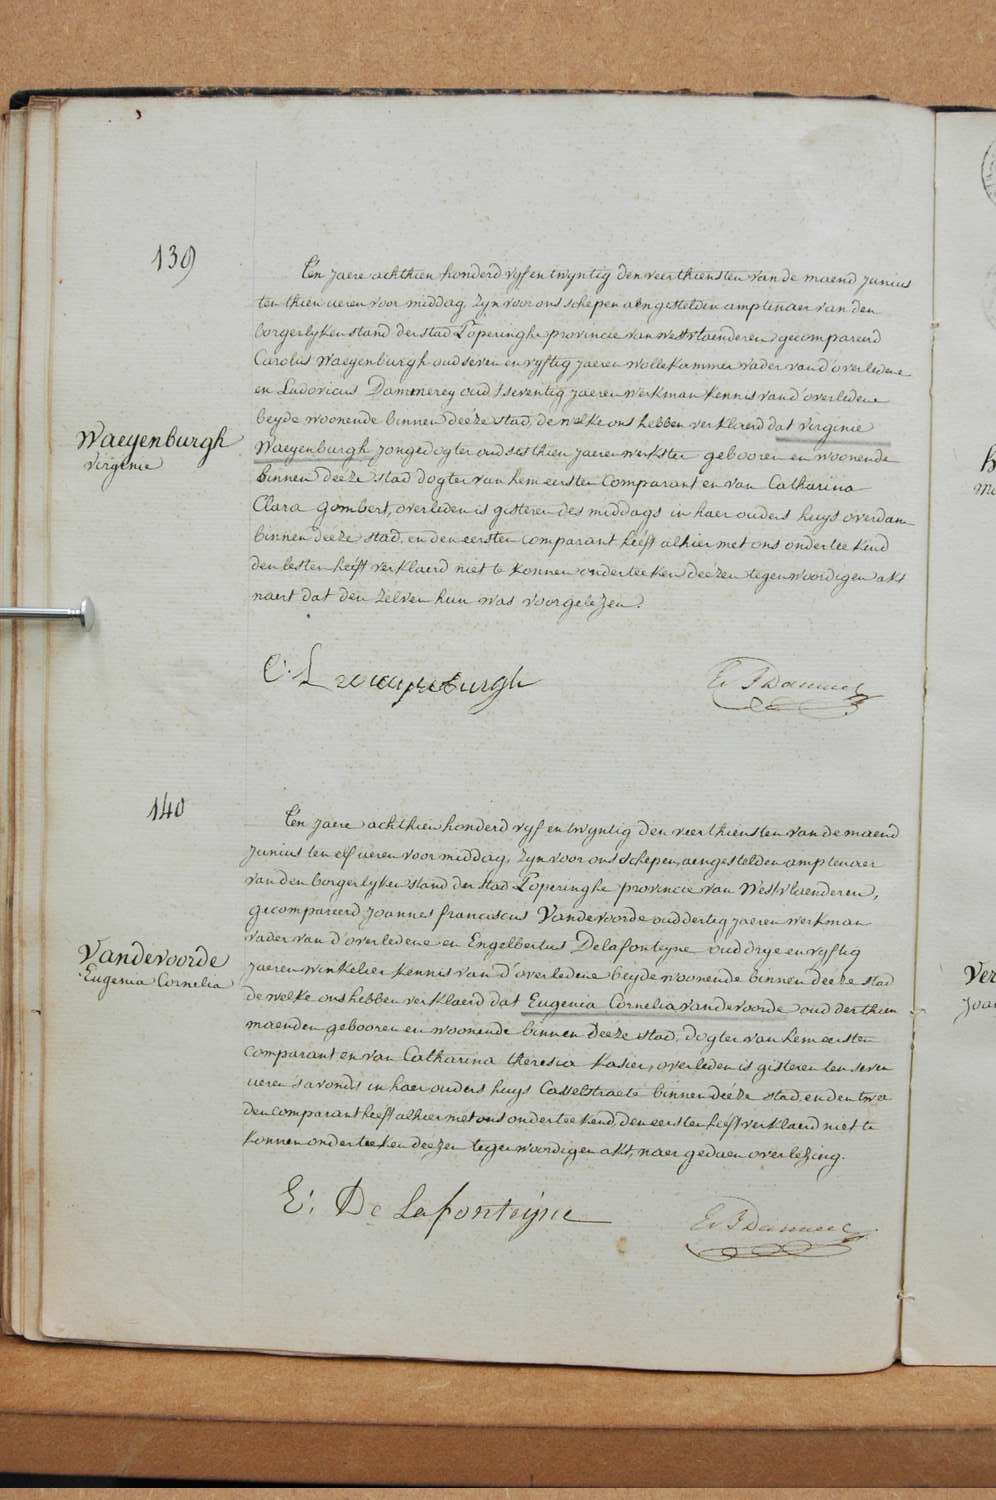 139
Ten jaere achthien honderd vyf en twyntig den veerthiensten van de maend junius
ten thien ueren voor middag, zyn voor ons schepen aengestelden amptenaer van den
borgerlyken stand der stad Poperinghe provincie van westvlaenderen gecompareerd
Carolus Waeyenburgh oud seven en vyftig jaeren wollekammer vader van d'overledene
en Ludovicus Dammerey oud seventig jaeren werkman kennis van d'overledene
beyde woonende binnen deéze stad, de welke ons hebben verklaerd dat Virginie
Waeyenburgh jongedogter oud sesthien jaeren werkster gebooren en woonende
binnen deeze stad dogter van hem eersten comparant en van Catharina
Clara Gombert, overleden is gisteren des middags in haer ouders huys overdam
binnen deeze stad, en den eersten comparant heéft alhier met ons onderteekend
den lesten heéft verklaerd niet te konnen onderteeken deézen tegenwoordigen akt
naert dat den zelven hun was voorgelezen.
Waeyenburgh
Virginie
C: L waeyenburgh
140
Ten jaere achthien honderd vyf en twyntig den veerthiensten van de maend
junius ten elf ueren voor middag, zyn voor ons schepen, aengestelden amptenaer
van den borgerlyken stand der stad Poperinghe provincie van Westvlaenderen,
gecompareerd Joannes franciscus Vandevoorde oud dertig jaeren werkman
vader van d'overledene en Engelbertus Delafonteyne oud drye en vyftig
jaeren winkelier kennis van d'overledene beyde woonende binnen deeze stad
de welke ons hebben verklaerd dat Eugenia Cornelia vandevoorde oud derthien
maenden gebooren en woonende binnen deeze stad, dogter van hem eersten
comparant en van Catharina theresia Kasier, overleden is gisteren ten seven
ueren s'avonds in haer ouders huys Casselstraete binnen deéze stad, en den twee
den comparant heeft alhier met ons onderteekend, den eersten heéft verklaerd niet te
konnen onderteeken deezen tegenwoordigen akt, naer gedaen overlezing.
Vandevoorde
Eugenia Cornelia
E: De Lafonteijne